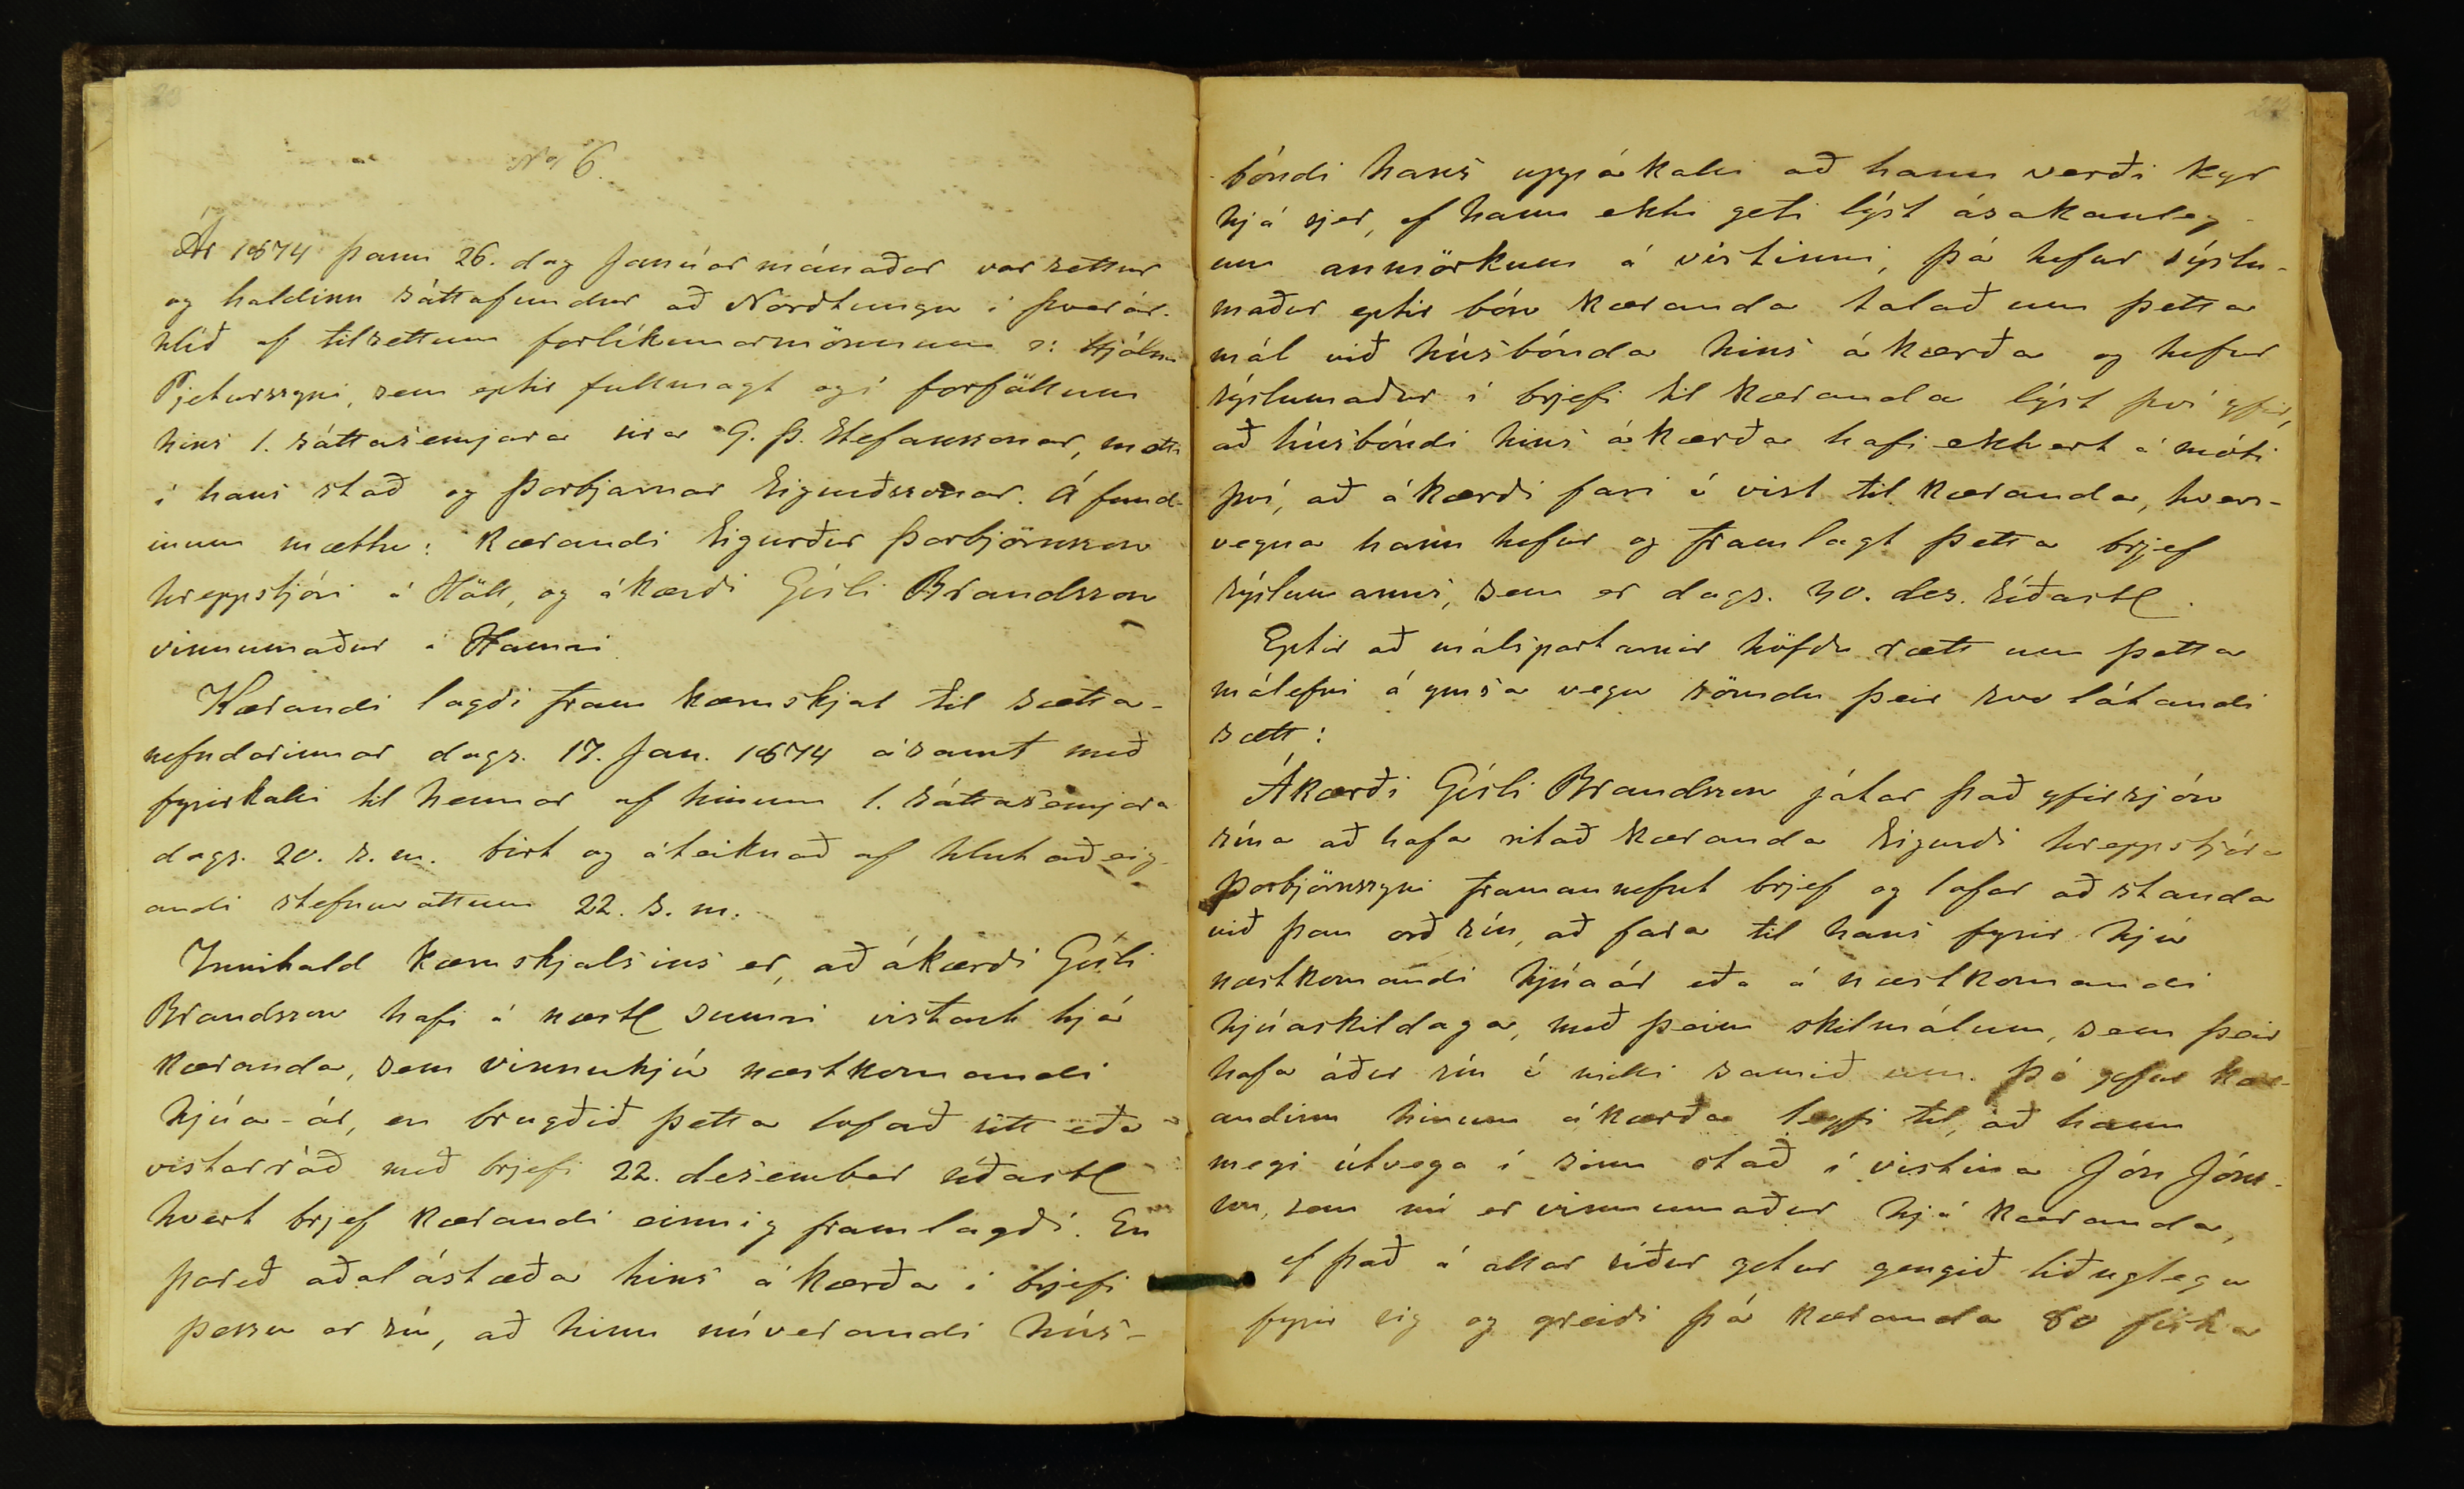 No 6.
Ár 1874 þann 26. dag Janúarmánaðar var settur
og haldinn sáttafundur að Norðtungu í Þverár-
hlíð af tilsettum forlíkunarmönnum ɔ: Hjálmi
Pjeturssyni, sem eptir fullmagt og í forföllum
hins 1. sáttasemjara sira G. Þ. Stefanssonar, mætti
í hans stað og Þorbjarnar Sigurðssonar. Á fund-
inum mættu: Kærandi Sigurður Þorbjörnsson
hreppstjóri á Höll, og ákærði Gísli Brandsson
vinnumaður á Hamri
Kærandi lagði fram kæruskjal til sætta-
nefndarinnar dags. 17. Jan. 1874 ásamt með
fyrirkalli til hennar af hinum 1. sáttasemjara
dags. 20. s. m. birt og áteiknað af hlutaðeig-
andi stefnuvottum 22. s. m.
Innihald kæruskjalsins er, að ákærði Gísli
Brandsson hafi á næstl sumri vistast hjá
kæranda, sem vinnuhjú næstkomandi
hjúa-ár, en brugðið þetta loforð sitt eða
vistarráð með brjefi 22. desember síðastl
hvert brjef kærandi einnig framlagði. En
þareð aðalástæða hins ákærða í brjefi
þessu er sú, að hinn núverandi hús-
bóndi hans uppákalli að hann verði kyr
hjá sjer, ef hann ekki geti lýst ásakanleg-
um anmörkum á vistinni, þá hefur sýslu-
maður eptir bón kæranda talað um þetta
mál við húsbónda hins ákærða og hefur
sýslumaður í brjefi til kæranda lýst því yfir,
að húsbóndi hins ákærða hafi ekkert á móti
því, að ákærði fari í vist til kæranda, hvers-
vegna hann hefur og framlagt þetta brjef
sýslumanns, sem er dags. 30. des. síðastl.
Eptir að málspartarnir höfðu rætt um þetta
málefni á ymsa vegu sömdu þeir svo látandi
sætt:
Ákærði Gísli Brandsson játar það yfirsjón
sína að hafa ritað kæranda Sigurði hreppstjóra
Þorbjörnssyni framannefnt brjef og lofar að standa
við þau orð sín, að fara til hans fyrir hjú
næstkomandi hjúaár eða á næstkomandi
hjúaskildaga, með þeim skilmálum, sem þeir
hafa áður sín í milli samið um. Þó gefur kær-
andinn hinum ákærða leyfi til, að hann
megi útvega í sinn stað í vistina Jón Jóns-
son, sem nú er vinnumaður hjá kæranda,
ef það á allar síður getur gengið liðuglega
fyrir sig og greiði þá kæranda 80 fiska